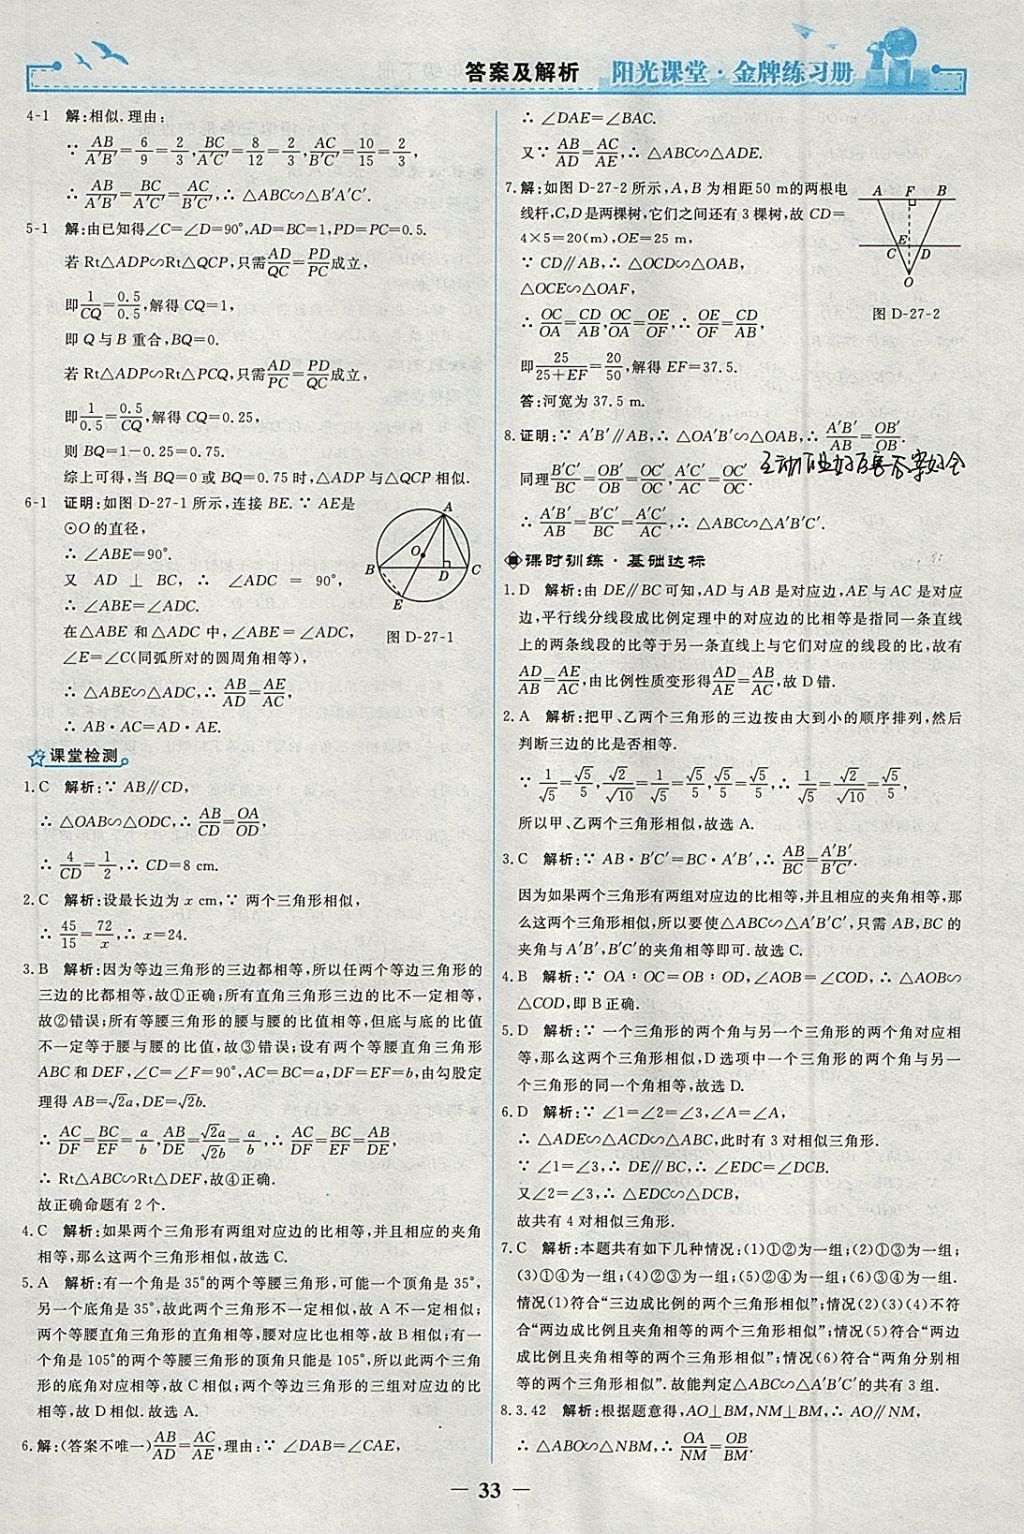 答案及解析 阳光课堂·金牌练习册
4-1 解:相似.理由:
∵ AB/A′B′=6/9=2/3,BC/A′C′=8/12=2/3,AC/B′C′=10/15=2/3,
∴ AB/A′B′=BC/A′C′=AC/B′C′,∴ △ABC∽△B′A′C′.
5-1 解:由已知得∠C=∠D=90°,AD=BC=1,PD=PC=0.5.
若 Rt△ADP∽Rt△QCP,只需AD/QC=PD/PC成立,
即1/CQ=0.5/0.5,解得 CQ=1,
即 Q 与 B 重合,BQ=0.
若 Rt△ADP∽Rt△PCQ,只需AD/PC=PD/QC成立,
即1/0.5=0.5/CQ,解得 CQ=0.25,
则 BQ=1-0.25=0.75.
综上可得,当 BQ=0 或 BQ=0.75 时,△ADP 与△QCP 相似.
6-1 证明:如图 D-27-1 所示,连接 BE. ∵ AE是
⊙O 的直径,
∴ ∠ABE=90°.
又 AD ⊥ BC,∴ ∠ADC = 90°,
∴ ∠ABE=∠ADC.
在△ABE 和△ADC 中,∠ABE =∠ADC,
∠E=∠C(同弧所对的圆周角相等),
∴ △ABE∽△ADC,∴ AB/AD=AE/AC,
∴ AB·AC=AD·AE.
A
O
B
D
C
E
图 D-27-1
课堂检测
1.C 解析:∵ AB∥CD,
∴ △OAB∽△ODC,∴ AB/CD=OA/OD,
∴ 4/CD=1/2,∴ CD=8 cm.
2.C 解析:设最长边为 x cm,∵ 两个三角形相似,
∴ 45/15=72/x,∴ x=24.
3.B 解析:因为等边三角形的三边都相等,所以任两个等边三角形的
三边的比都相等,故①正确;所有直角三角形三边的比不一定相等,
故②错误;所有等腰三角形的腰与腰的比值相等,但底与底的比值
不一定等于腰与腰的比值,故③错误;设有两个等腰直角三角形
ABC 和 DEF,∠C=∠F=90°,AC=BC=a,DF=EF=b,由勾股定
理得 AB=√2a,DE=√2b.
∴ AC/DF=BC/EF=a/b,AB/DE=√2a/√2b=a/b,∴ AC/DF=BC/EF=AB/DE,
∴ Rt△ABC∽Rt△DEF,故④正确.
故正确命题有 2 个.
4.C 解析:如果两个三角形有两组对应边的比相等,并且相应的夹角
相等,那么这两个三角形相似,故选 C.
5.A 解析:有一个角是 35°的两个等腰三角形,可能一个顶角是 35°,
另一个底角是 35°,故此两个三角形不一定相似,故 A 不一定相似;
两个等腰直角三角形的直角相等,腰对应比也相等,故 B 相似;有
一个角是 105°的两个等腰三角形的顶角只能是 105°,所以此两个三角
形的底角对应相等,故 C 相似;两个等边三角形的三组对应边的比
相等,故 D 相似.故选 A.
6.解:(答案不唯一)AB/AD=AC/AE,理由:∵ ∠DAB=∠CAE,
∴ ∠DAE=∠BAC.
又∵ AB/AD=AC/AE,∴ △ABC∽△ADE.
7.解:如图 D-27-2 所示,A,B 为相距50 m的两根电
线杆,C,D 是两棵树,它们之间还有 3 棵树,故 CD=
4×5=20(m),OE=25 m,
∵ CD∥AB,∴ △OCD∽△OAB,
△OCE∽△OAF,
∴ OC/OA=CD/AB,OC/OA=OE/OF,∴ OE/OF=CD/AB,
即25/(25+EF)=20/50,解得 EF=37.5.
答:河宽为 37.5 m.
A F B
C E D
O
图 D-27-2
8.证明:∵ A′B′∥AB,∴ △OA′B′∽△OAB,∴ A′B′/AB=OB′/OB.
同理B′C′/BC=OB′/OB=OC′/OC,A′C′/AC=OC′/OC.
∴ A′B′/AB=B′C′/BC=A′C′/AC,∴ △ABC∽△A′B′C′.
课时训练·基础达标
1.D 解析:由 DE∥BC可知,AD 与 AB 是对应边,AE 与 AC 是对应
边,平行线分线段成比例定理中的对应边的比相等是指同一条直线
上的两条线段的比等于另一条直线上与它们对应的线段的比,故有
AD/AB=AE/AC,由比例性质变形得AD/AE=AB/AC,故 D 错.
2.A 解析:把甲、乙两个三角形的三边按由大到小的顺序排列,然后
判断三边的比是否相等.
∵ 1/√5=√5/5,√2/√10=√5/5,√5/5=√5/5,∴ 1/√5=√2/√10=√5/5,
所以甲、乙两个三角形相似,故选 A.
3.C 解析:∵ AB·B′C′=BC·A′B′,∴ AB/BC=A′B′/B′C′.
因为如果两个三角形有两组对应边的比相等,并且相应的夹角相等,那
么这两个三角形相似,所以要使△ABC∽△A′B′C′,只需 AB,BC 的
夹角与 A′B′,B′C′的夹角相等即可.故选 C.
4.B 解析:∵ OA∶OC=OB∶OD,∠AOB=∠COD,∴ △AOB∽
△COD,即 B 正确.
5.D 解析:∵ 一个三角形的两个角与另一个三角形的两个角对应相
等,那么这两个三角形相似,D 选项中一个三角形的两个角与另一
个三角形的同一个角相等,故选 D.
6.D 解析:∵ ∠1=∠2=∠3,∠A=∠A,
∴ △ADE∽△ACD∽△ABC,此时有 3 对相似三角形.
∵ ∠1=∠3,∴ DE∥BC,∴ ∠EDC=∠DCB.
又∠2=∠3,∴ △EDC∽△DCB,
故共有 4 对相似三角形.
7.C 解析:本题共有如下几种情况:(1)①②为一组;(2)①③为一组;
(3)①④为一组;(4)②③为一组;(5)②④为一组;(6)③④为一组.
情况(1)符合“三边成比例的两个三角形相似”;情况(2)(3)(4)不符
合“两边成比例且夹角相等的两个三角形相似”;情况(5)符合“两边
成比例且夹角相等的两个三角形相似”;情况(6)符合“两角分别相
等的两个三角形相似”.故能判定△ABC∽△A′B′C′的共有 3 组.
8.3.42 解析:根据题意得,AO⊥BM,NM⊥BM,∴ AO∥NM,
∴ △ABO∽△NBM,∴ OA/NM=OB/BM.
— 33 —